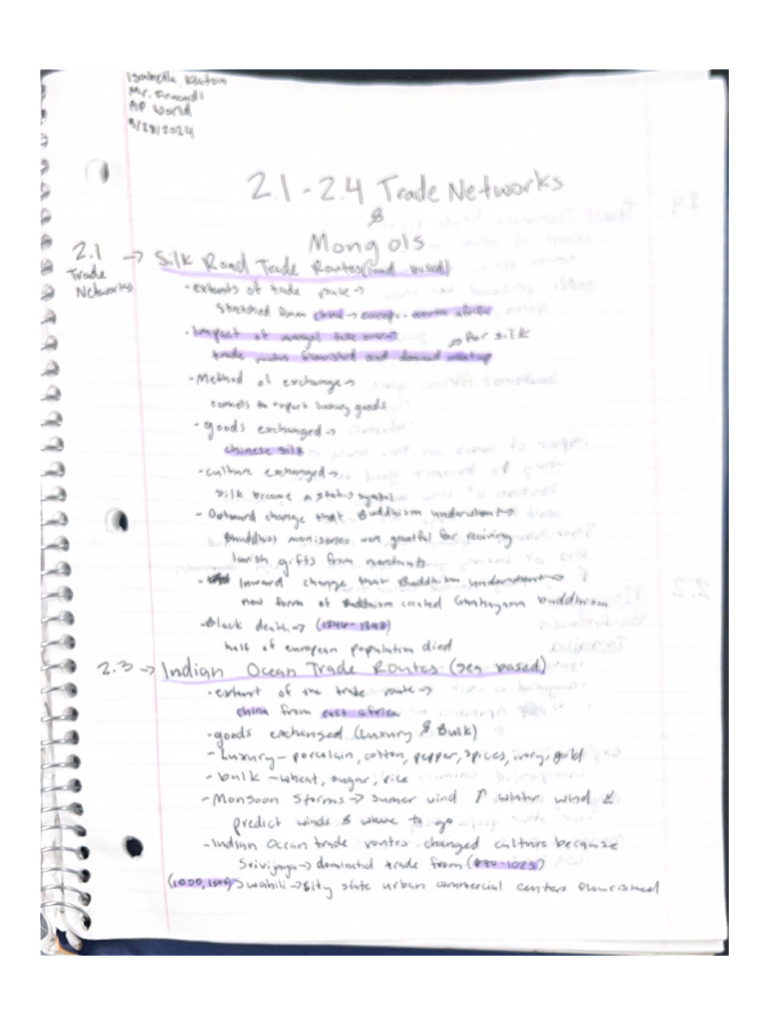 Isabella
Mr.
AP World
/28/2024
2.1 - 2.4 Trade Networks
&
Mongols
2.1 → Silk Road Trade Routes (land based)
Trade
Networks
- extents of trade route →
Stretched from china → europe - africa
- Impact of mongol take over →
trade routes flourished and demand went up → for silk
- Method of exchange →
camels to export luxury goods
- goods exchanged →
chinese silk
- culture exchanged →
silk became a status symbol
- Outward change that Buddhism underwent →
were grateful for receiving
lavish gifts from merchants
- Inward change that Buddhism underwent →
new form of Buddhism created buddhism
- Black death → (1346-1348)
half of european population died
2.3 → Indian Ocean Trade Routes (sea based)
- extent of the trade route →
china from east africa
- goods exchanged (Luxury & Bulk)
- Luxury - porcelain, cotton, pepper, spices, ivory, gold
- bulk - wheat, sugar, rice
- Monsoon Storms → sumer wind ↑ winter wind ↙
predict winds & where to go
- Indian Ocean trade routes changed culture because
Srivijaya → dominated trade from (-1025)
(1000, 1500) Swahili → city state urban commercial centers flourished